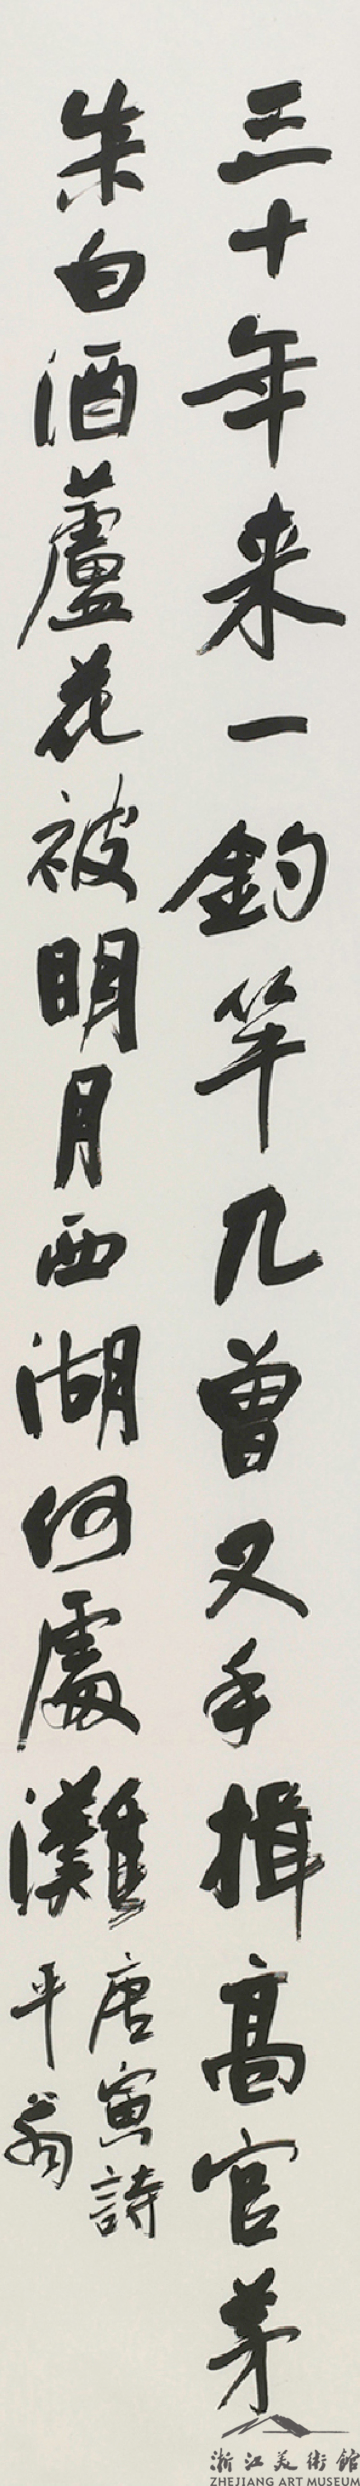 三十年来一釣竿几曾叉手揖高官茅
柴白酒蘆花被明月西湖何處灘
唐寅詩
平翁
浙江美術館
ZHEJIANG ART MUSEUM